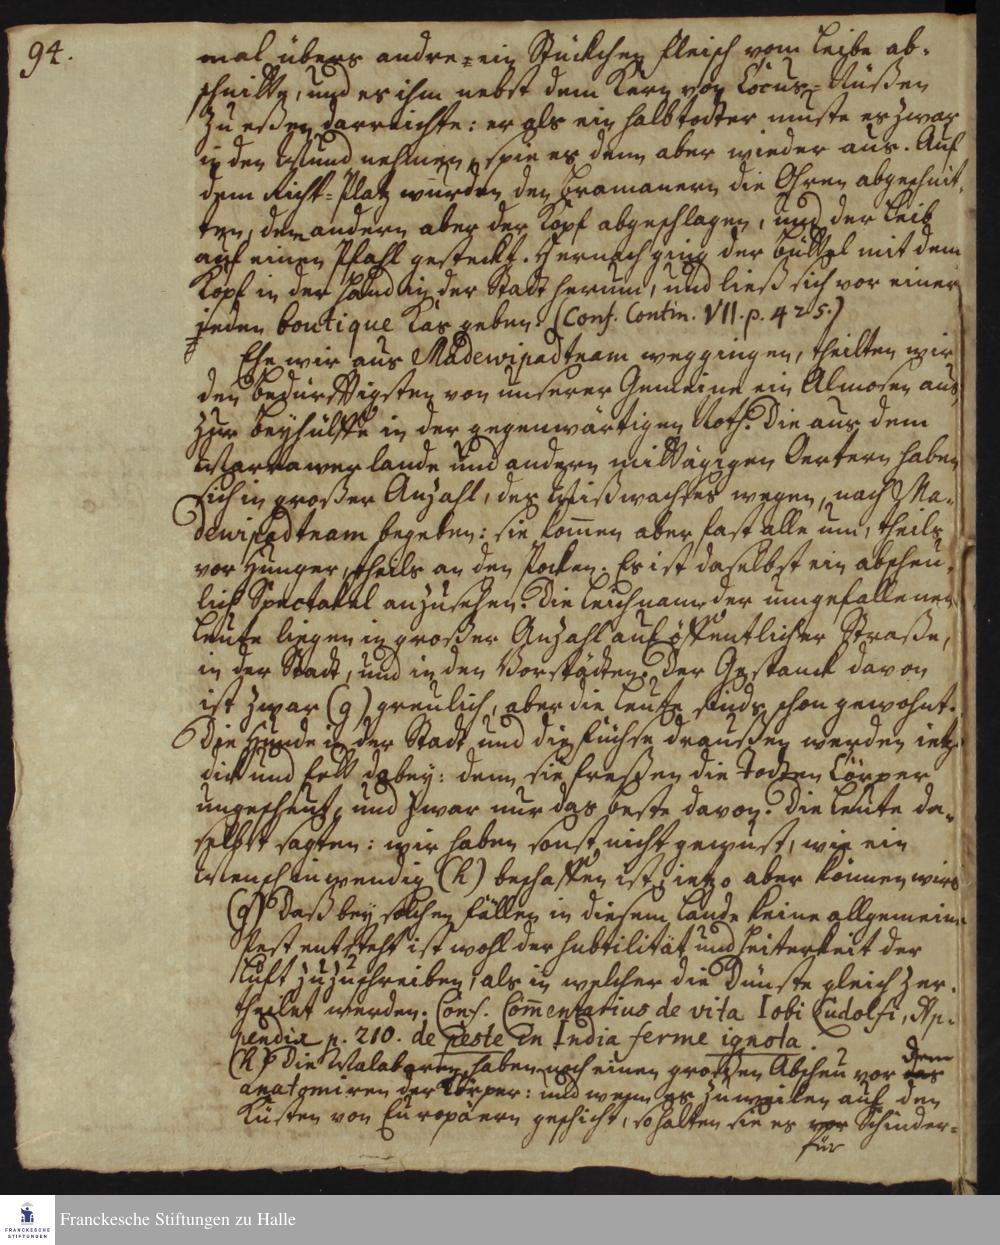 94.
mal übers andre ein Stückchen Fleisch vom Leibe ab-
schnitte, und es ihm nebst dem Kern von Cocus-Nüßen
zu eßen darreichte: er als ein halbtodter muste es zwar
in den Mund nehmen, spie es denn aber wieder aus. Auf
dem Richt-Platz wurden den Bramanern die Ohren abgeschnit-
ten, dem andern aber der Kopf abgeschlagen, und der Leib
auf einen Pfahl gesteckt. Hernach ging der Büttel mit dem
Kopf in der Hand in der Stadt herum, und ließ sich vor einer
jeden boutique Kas geben. (Conf. Contin. VII. p. 425.)
Ehe wir aus Mādewipadtnam weggingen, theilten wir
den bedürfftigsten von unserer Gemeine ein Almosen aus,
zur Beyhülffe in der gegenwärtigen Noth. Die aus dem
Marrawerlande und andern mittägigen Oertern haben
sich in großer Anzahl, des Mißwachses wegen, nach Mā-
dewipadtnam begeben: sie kom̄en aber fast alle um, theils
vor Hunger, theils an den Pocken. Es ist daselbst ein abscheu-
lich Spectakel anzusehen. Die Leichname der umgefallenen
Leute liegen in großer Anzahl auf öffentlicher Straße,
in der Stadt, und in den Vorstädten. Der Gestanck davon
ist zwar (g) greulich, aber die Leute sinds schon gewohnt.
Die Hunde in der Stadt und die Füchse draußen werden ietzo
dick und fett dabey: denn sie freßen die todten Cörper
ungescheut, und zwar nur das beste davon. Die Leute da-
selbst sagten: wir haben sonst nicht gewust, wie ein
Mensch inwendig (h) beschaffen ist, ietzo aber können wirs
(g) Daß bey solchen Fällen in diesem Lande keine allgemeine
Pest entsteht ist wohl der Subtilität und Heiterkeit der
Luft zuzuschreiben, als in welcher die Dünste gleich zer-
theilet werden. Conf. Com̄entarius de vita Iobi Ludolfi, Ap-
pendix p. 210. de peste in India ferme ignota.
(h) Die Malabaren haben noch einen großen Abscheu vor dem
anatomiren der Körper: und wenn es zuweilen auf den
Küsten von Europäern geschicht, so halten sie es vor Schinder-
für
Franckesche Stiftungen zu Halle
FRANCKESCHE
STIFTUNGEN